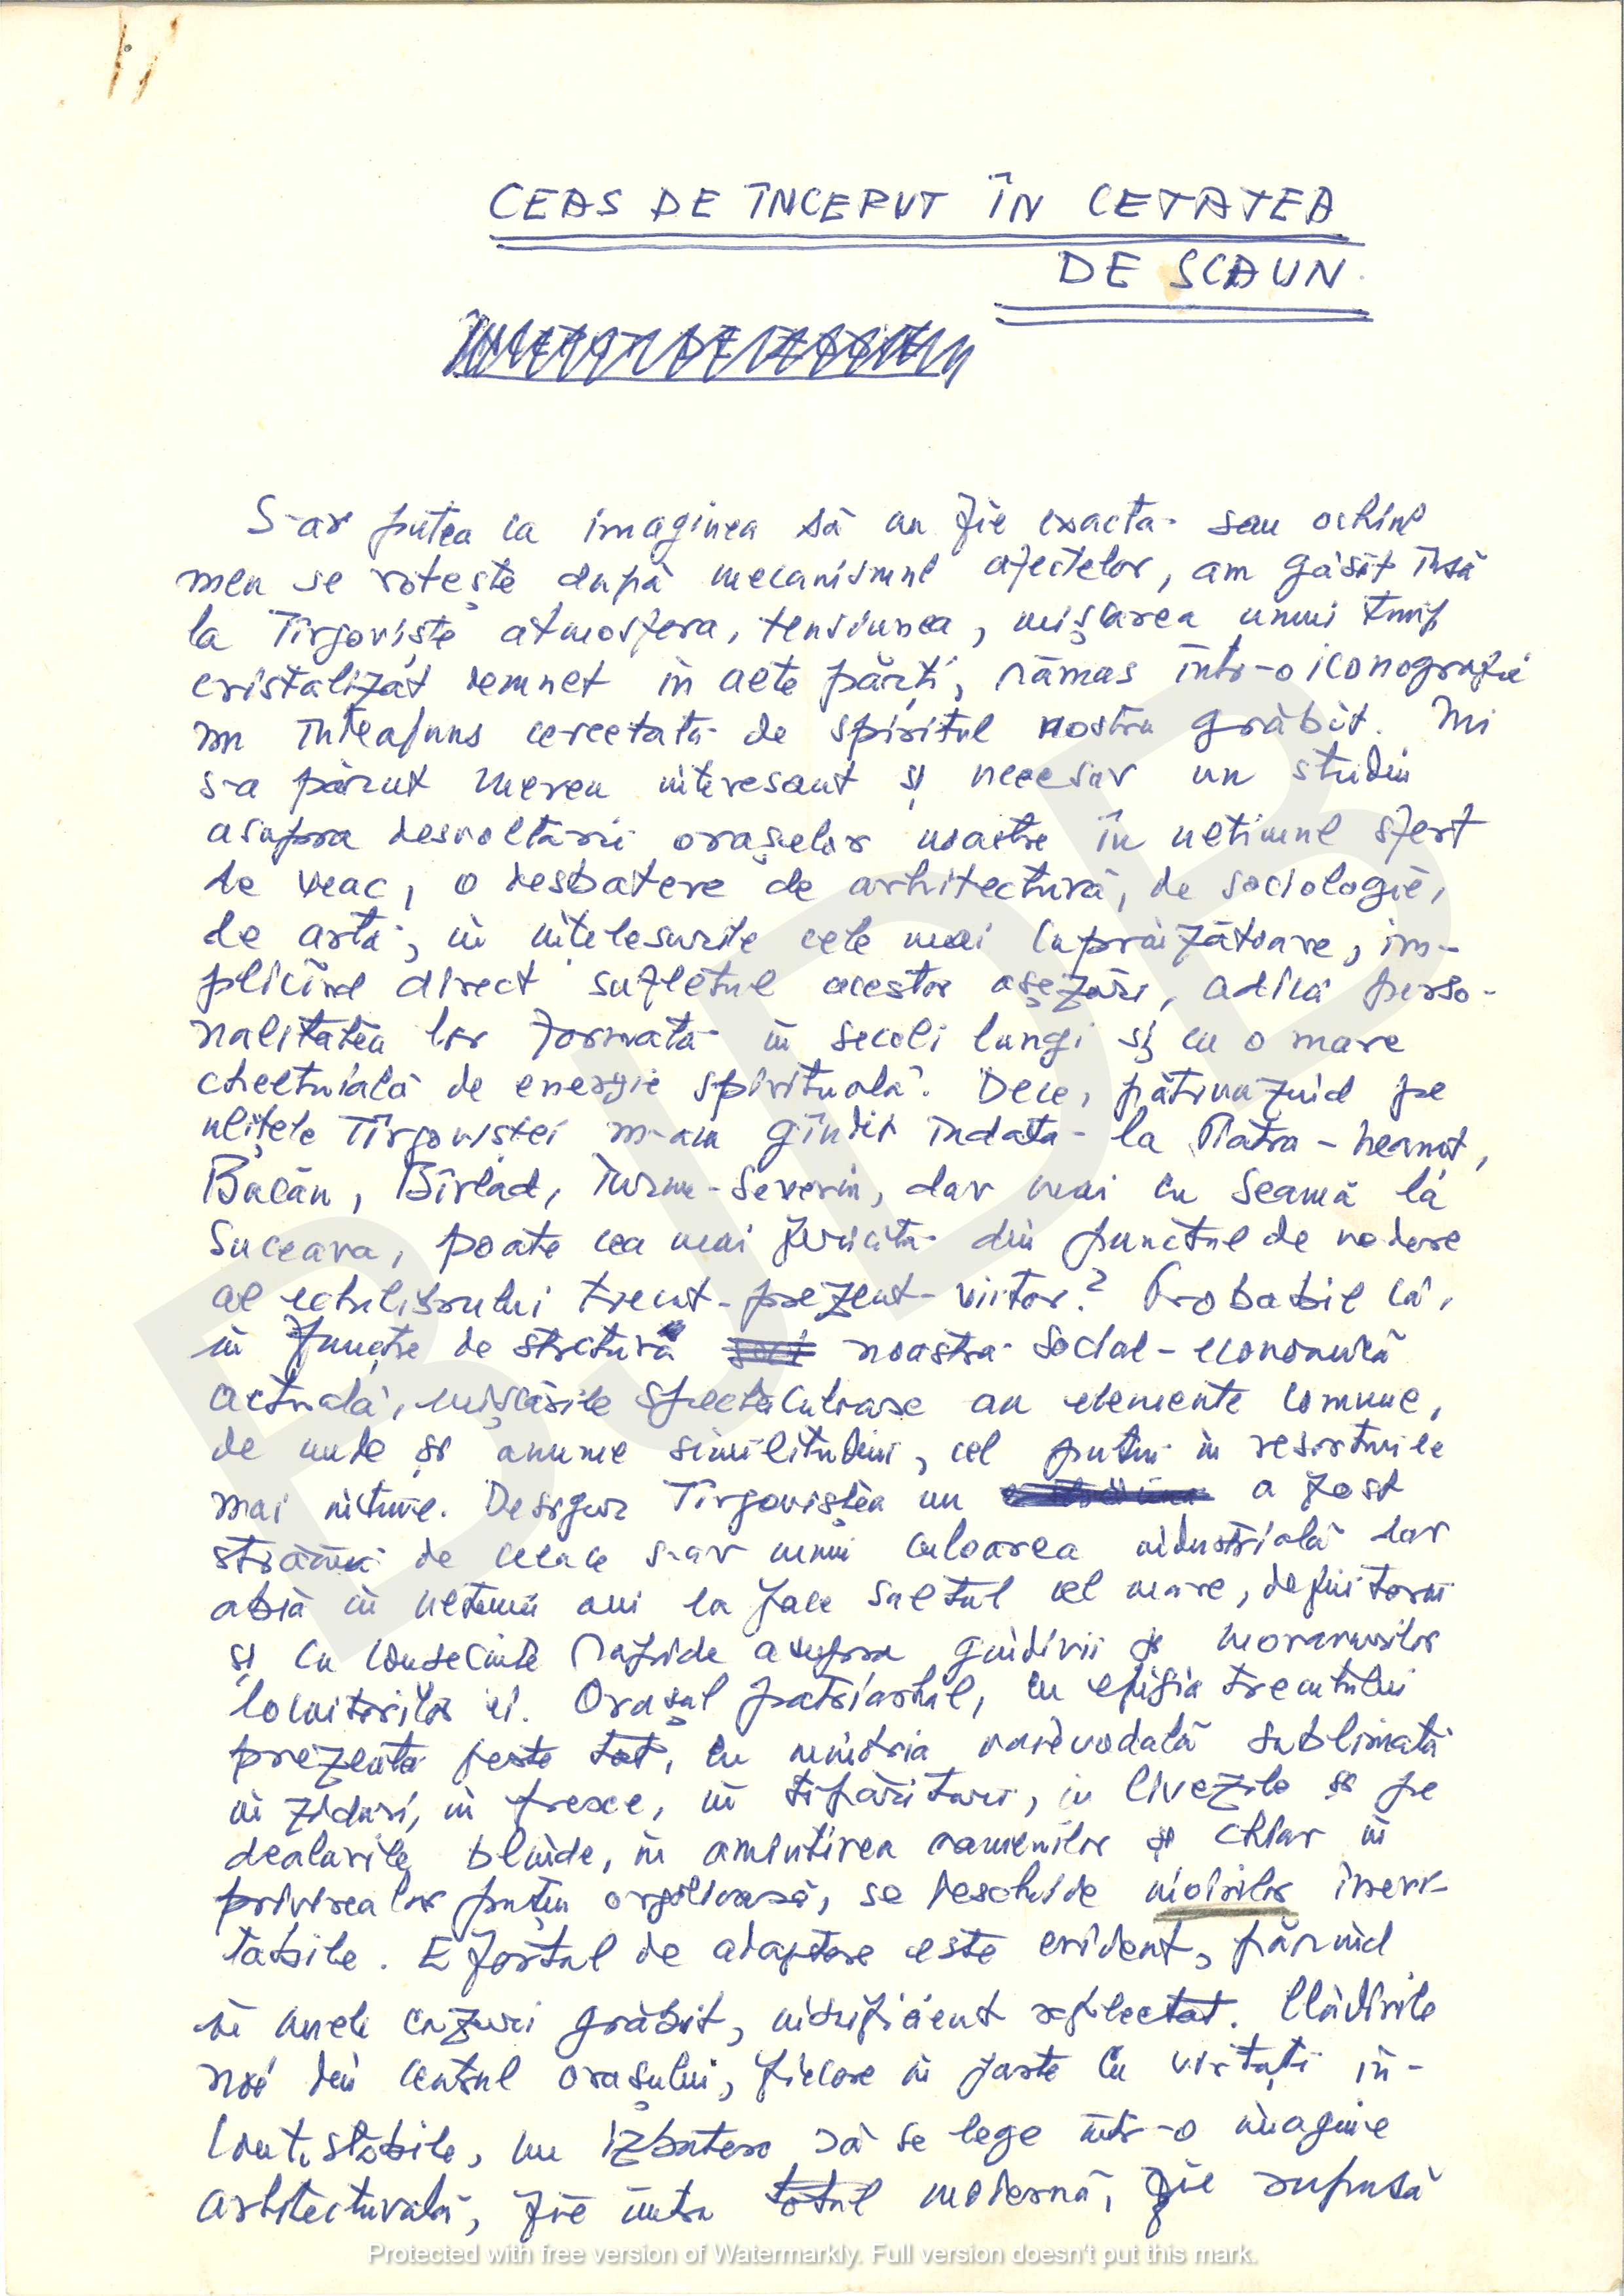 CEAS DE ÎNCEPUT ÎN CETATEA
DE SCAUN.
S-ar putea ca imaginea să nu fie exactă sau ochiul
meu se rotește după mecanismul afectelor, am găsit însă
la Tîrgoviște atmosfera, tensiunea, mișcarea unui timp
cristalizat demnet în alte părți, rămas într-o iconografie
nu îndeajuns cercetată de spiritul nostru grăbit. Mi
s-a părut mereu interesant și necesar un studiu
asupra desvoltării orașelor noastre în ultimul sfert
de veac, o desbatere de arhitectură, de sociologie,
de artă, în înțelesurile cele mai cuprinzătoare, im-
plicînd direct sufletul acestor așezări, adică perso-
nalitatea lor formată în secoli lungi și cu o mare
cheltuială de energie spirituală. Dece, pătrunzînd pe
ulițele Tîrgoviștei m-am gîndit îndată la Piatra-Neamț,
Bacău, Bîrlad, Turnu-Severin, dar mai cu seamă la
Suceava, poate cea mai fericită din punctul de vedere
al echilibrului trecut-prezent-viitor? Probabil că,
în funcție de strctura noastră social-economică
actuală, mișcările spectaculoase au elemente comune,
de unde și anume similitudini, cel puțin în resorturile
mai intime. Desigur Tîrgoviștea nu a fost
străină de ceeace s-ar numi culoarea industrială dar
abia în ultimii ani ea face saltul cel mare, definitoriu
și cu consecințe rapide asupra gîndirii și moravurilor
locuitorilor ei. Orașul patriarhal, cu efigia trecutului
prezentă peste tot, cu mîndria voievodală sublimată
în ziduri, în fresce, în tipărituri, în livezile și pe
dealurile blînde, în amintirea oamenilor și chiar în
privirea lor puțin orgolioasă, se deschide înoirilor inevi-
tabile. Efortul de adaptare este evident, părînd
în unele cazuri grăbit, insuficient reflectat. Clădirile
noi din centrul orașului, fiecare în parte cu virtuți in-
contestabile, nu izbutesc să se lege într-o imagine
arhitecturală, fie întru totul modernă, fie supusă
Protected with free version of Watermarkly. Full version doesn't put this mark.
BJDB